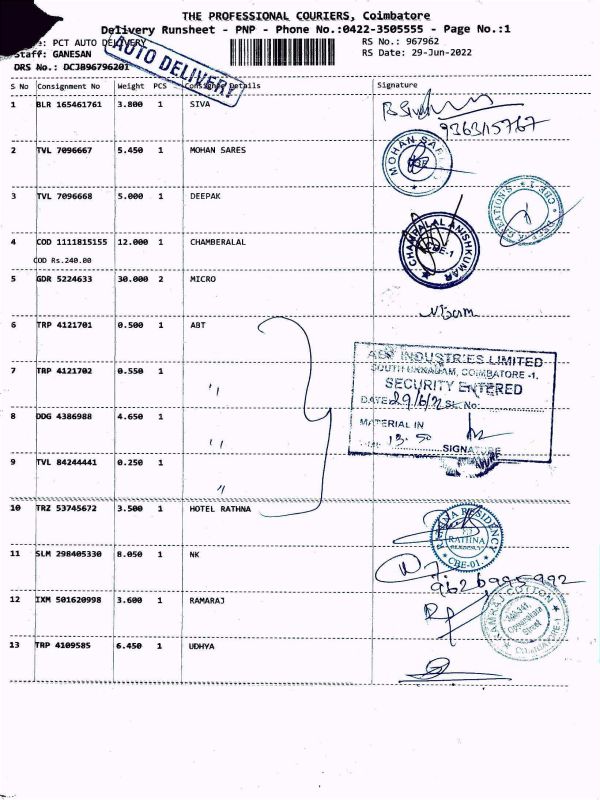 THE PROFESSIONAL COURIERS, Coimbatore
Delivery Runsheet - PNP - Phone No.:0422-3505555 - Page No.:1
PCT AUTO DELIVERY
RS No.: 967962
Staff: GANESAN
RS Date: 29-Jun-2022
DRS No.: DCJB96796201
AUTO DELIVERY
S No Consignment No Weight PCS Consignee Details Signature
1 BLR 165461761 3.800 1 SIVA
9363115767
2 TVL 7096667 5.450 1 MOHAN SARES
MOHAN SARES
3 TVL 7096668 5.000 1 DEEPAK
CBE-1
4 COD 1111815155 12.000 1 CHAMBERALAL
COD Rs.240.00
CHAMPALAL ANISHKUMAR
CBE-1
5 GDR 5224633 30.000 2 MICRO
6 TRP 4121701 0.500 1 ABT
7 TRP 4121702 0.550 1 "
8 DDG 4386988 4.650 1 "
9 TVL 84244441 0.250 1 "
INDUSTRIES LIMITED
COIMBATORE -1.
SECURITY ENTERED
DATE 29/6/2 SL. No:
MATERIAL IN
13.50
SIGNATURE
10 TRZ 53745672 3.500 1 HOTEL RATHNA
RATHNA RESIDENCY
RATHNA
RESIDENCY
CBE-01.
11 SLM 298405330 8.050 1 NK
9626995992
12 IXM 501620998 3.600 1 RAMARAJ
RAMRAJ COTTON
Oppanakara
Street
COIMBATORE-1
13 TRP 4109585 6.450 1 UDHYA